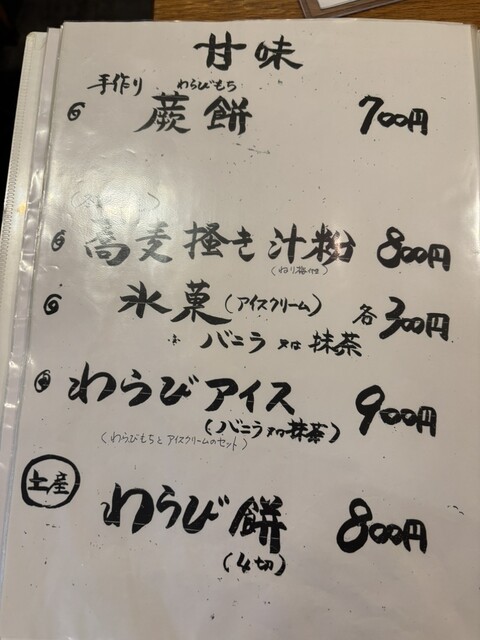 甘味
手作り わらびもち
蕨餅 700円
蕎麦掻き汁粉 800円
氷菓(アイスクリーム) 各300円
バニラ又は抹茶
わらびアイス 900円
(バニラ又は抹茶)
(わらびもちとアイスクリームのセット)
土産
わらび餅 800円
(4切)